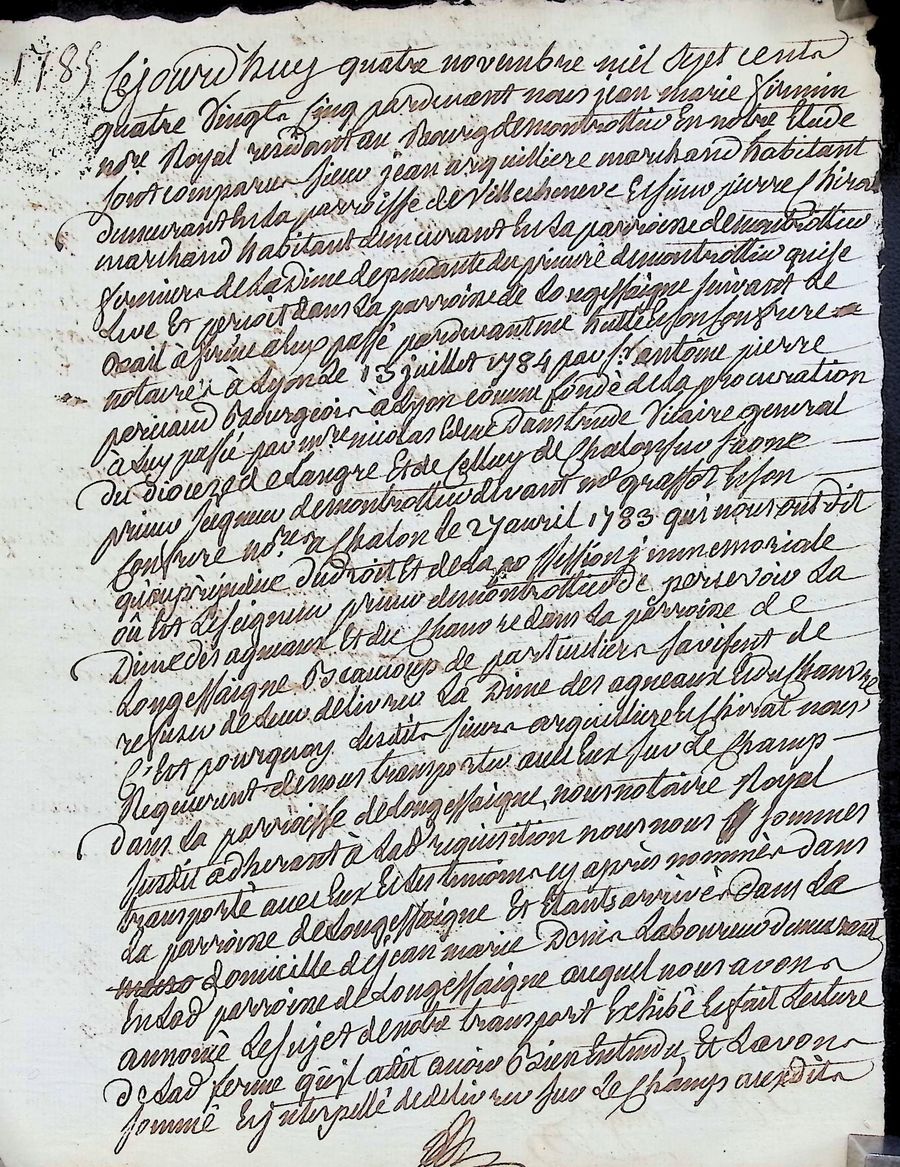 1785
Cejourd'huy quatre novembre mil sept cents
quatre vingts cinq pardevant nous jean marie firmin
nore Royal residant au Bourg de montrottier En notre Etude
sont comparus sieur jean arquilliere marchand habitant
demeurant En la parroisse de Villecheneve Et sieur pierre Chirat
marchand habitant demeurant En la parroisse de montrottier
fermiers de la Dime dependante du prieuré de montrottier qui se
Leve Et persoit dans La parroisse de Longessaigne suivant Le
Bail à ferme a Eux passé pardevant me Et son Confrere
notaires à Lyon Le 13 juillet 1784 par sr antoine pierre
Bourgeois à Lyon comme fondé de la procuration
à Luy passée par mre nicolas Vicaire general
du dioceze de Langre Et de Celluy de Chalon sur saone
prieur seigneur de montrottier devant me graffot Et son
Confrere nores a Chalon le 27 avril 1783 qui nous ont dit
qu'au prejudice du droit Et de la possession immemoriale
où Est Le seigneur prieur de montrottier De persevoir La
Dime des agneaux Et du Chanvre dans La parroisse de
Longessaigne Beaucoup de particuliers s'avisent de
refuser de Leur delivrer La Dime des agneaux Et du Chanvre
C'Est pourquoy Lesdits sieurs arquilliere Et Chirat nous
Requierent de nous transporter avec Eux sur Le Champ
dans La parroisse de Longessaigne, nous notaire Royal
susdit adherant à Lad requisition nous nous sommes
transporté avec Eux Et Les temoins cy après nommés dans
La parroisse de Longessaigne Et Etants arrivés dans La
domicille de jean marie Denis Laboureur demeurant
En Lad parroisse de Longessaigne auquel nous avons
annoncé Le sujet de notre transport Exhibé Et fait Lecture
de Lad ferme qu'il a dit avoir Bien Entendu, Et L'avons
sommé Et interpellé de delivrer sur Le Champ auxdits